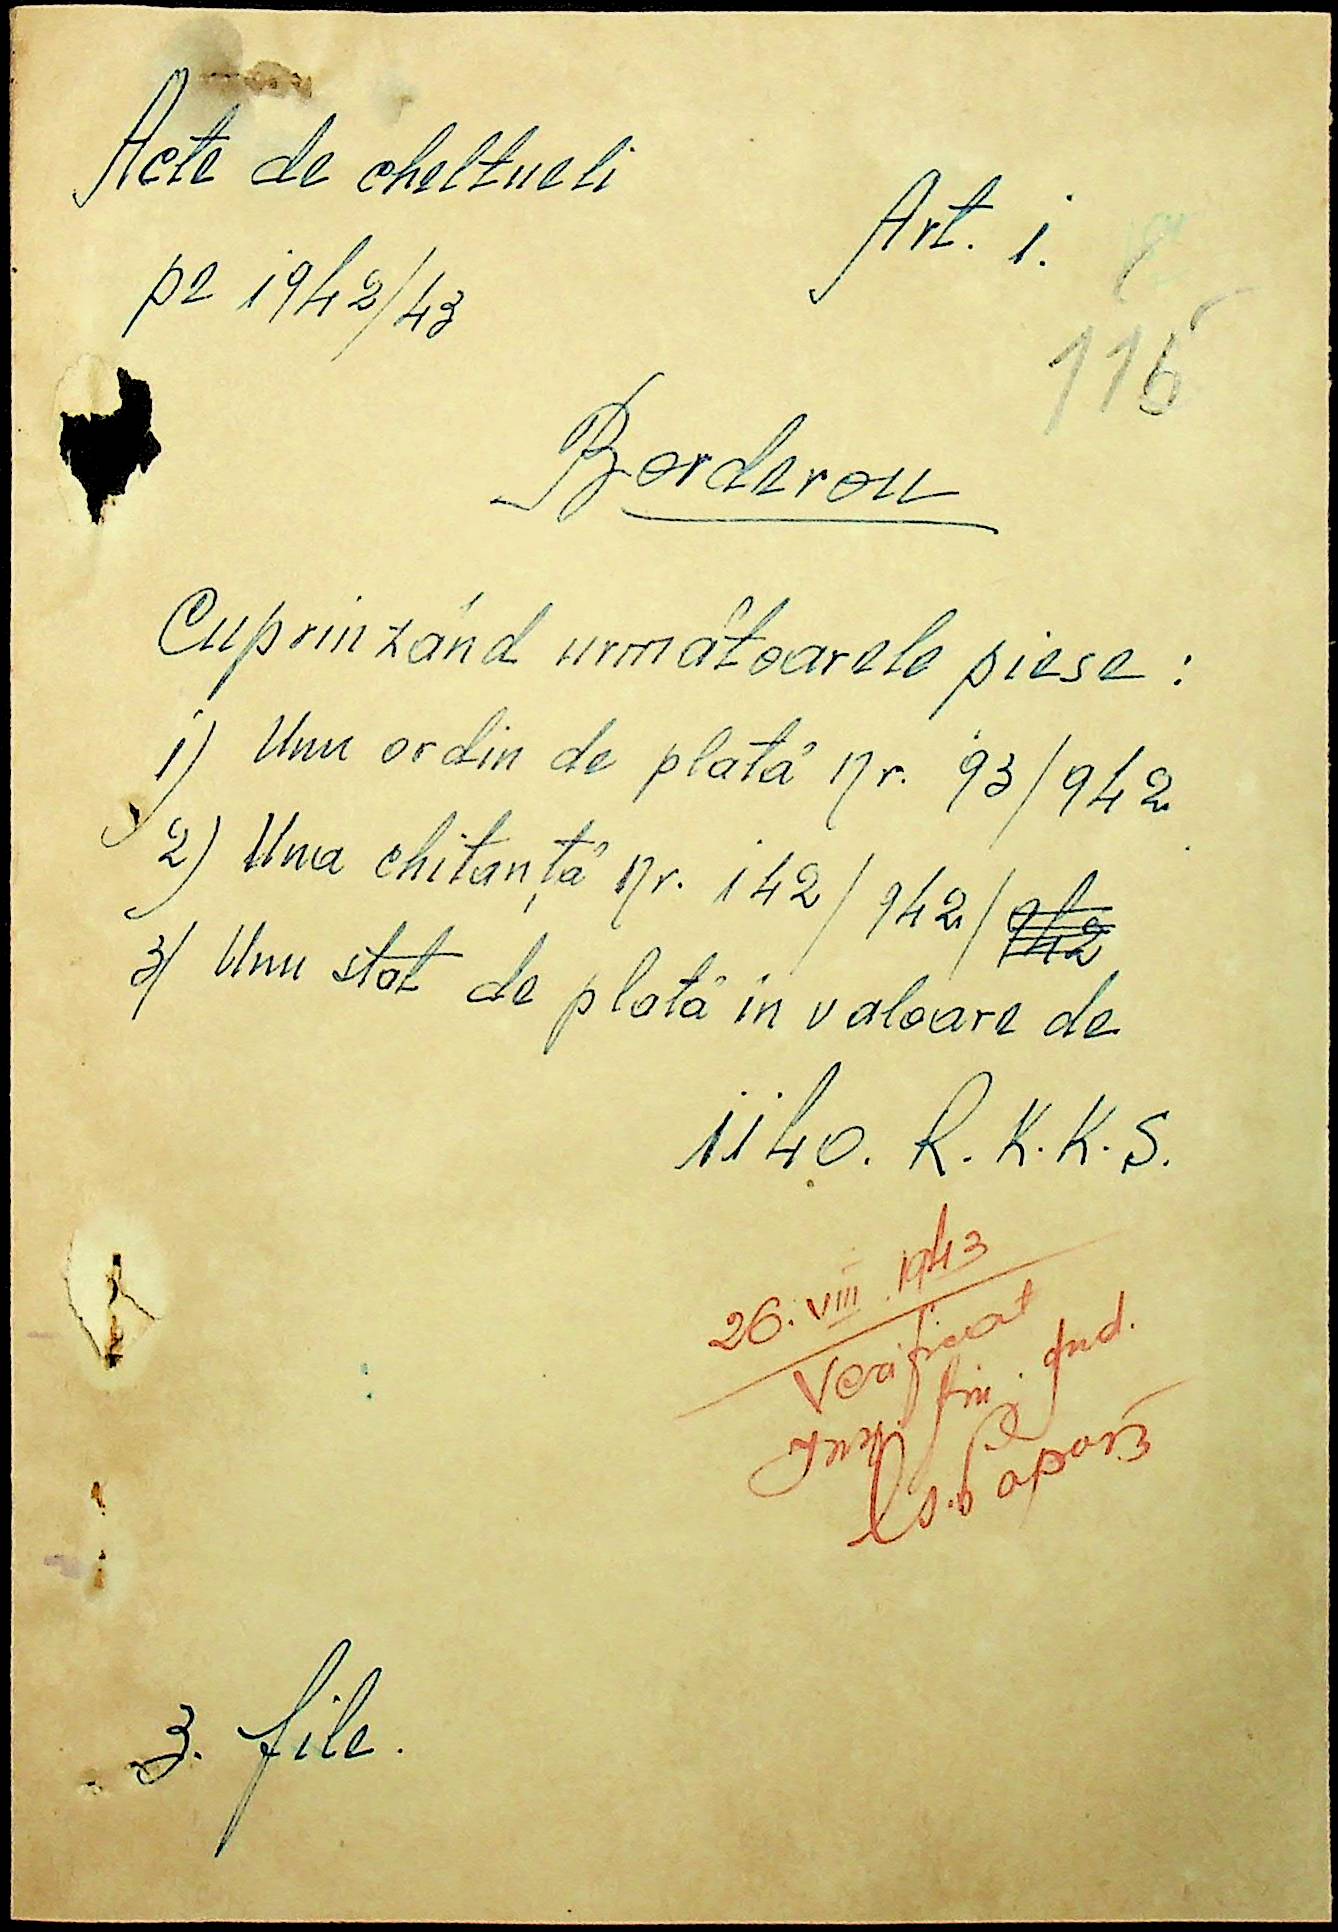 Acte de cheltueli
Art. 1.
pe 1942/43
115
Borderou
Cuprinzând următoarele piese :
1) Unu ordin de plată Nr. 93/942
2) Una chitanță Nr. 142/942/942
3) Unu stat de plată in valoare de
1140. R.K.K.S.
26.VIII.1943
Verificat
fin. Jud.
3. file.